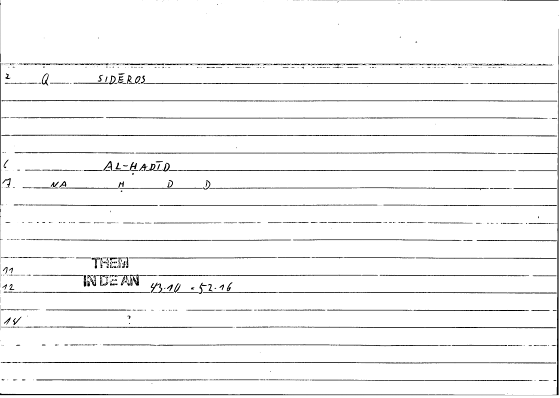 2 Q SIDĒROS
6 AL-ḤADĪD
7 NA Ḥ D D
11 THEM
12 IN DE AN 43.10 - 52.16
14 ?